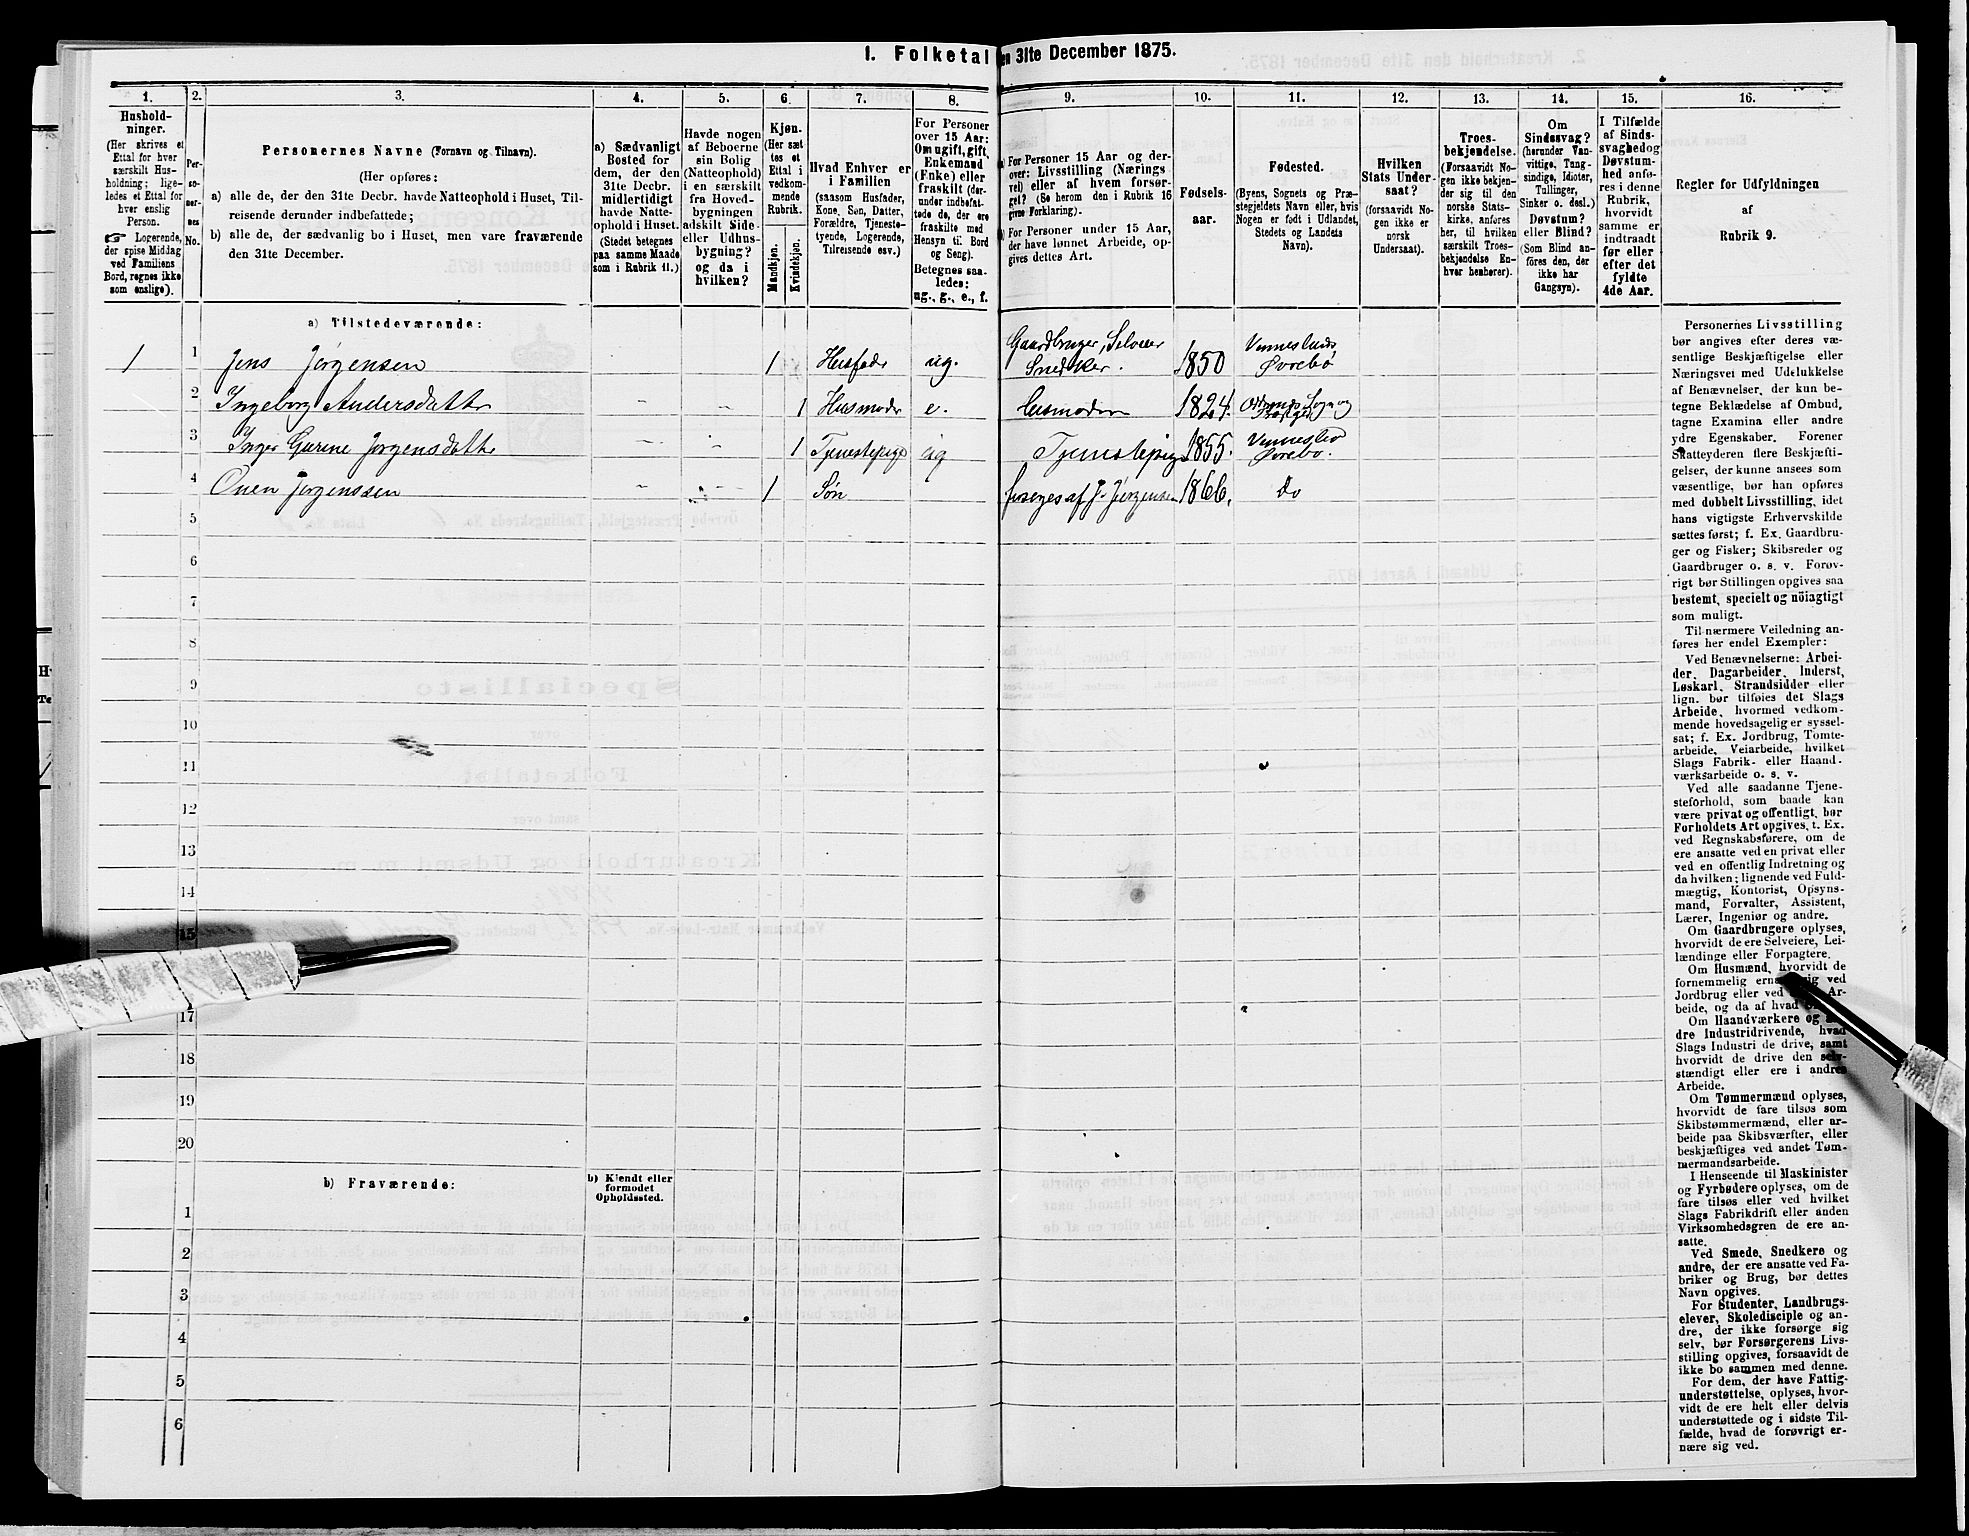 1. Folketal
en 31te December 1875.
1.
Hushold-
ninger.
(Her skrives et
Ettal for hver
særskilt Hus-
holdning; lige-
ledes et Ettal for
hver enslig
Person.
☞ Logerende,
der spise Middag
ved Familiens
Bord, regnes ikke
som enslige).
2.
Per-
so-
ner-
nes
No.
3.
Personernes Navne (Fornavn og Tilnavn).
(Her opføres:
a) alle de, der den 31te Decbr. havde Natteophold i Huset, Til-
reisende derunder indbefattede;
b) alle de, der sædvanlig bo i Huset, men vare fraværende
den 31te December.
4.
a) Sædvanligt
Bosted for
dem, der den
31te Decbr.
midlertidigt
havde Natte-
ophold i Huset.
(Stedet betegnes
paa samme Maade
som i Rubrik 11.)
5.
Havde nogen
af Beboerne
sin Bolig
(Natteophold)
i en særskilt
fra Hoved-
bygningen
adskilt Side-
eller Udhus-
bygning?
og da i
hvilken?
6.
Kjøn.
(Her sæt
tes et
Ettal i
vedkom-
mende
Rubrik.
Mandkjøn.
Kvindekjøn.
7.
Hvad Enhver er
i Familien
(saasom Husfader,
Kone, Søn, Datter,
Forældre, Tjeneste-
tyende, Logerende,
Tilreisende esv.)
8.
For Personer
over 15 Aar:
Om ugift, gift,
Enkemand
(Enke) eller
fraskilt (der-
under indbefat-
tede de, der ere
fraskilte med
Hensyn til Bord
og Seng).
Betegnes saa-
ledes:
ug., g., e., f.
9.
a) For Personer 15 Aar og der-
over: Livsstilling (Nærings
vei) eller af hvem forsør-
get? (Se herom den i Rubrik 16
givne Forklaring).
b) For Personer under 15 Aar,
der have lønnet Arbeide, op-
gives dettes Art.
10.
Fødsels-
aar.
11.
Fødested.
(Byens, Sognets og Præ-
stegjeldets Navn eller, hvis
Nogen er født i Udlandet,
Stedets og Landets
Navn).
12.
Hvilken
Stats Under-
saat?
(forsaavidt No-
gen ikke er
norsk
Undersaat).
13.
Troes-
bekjendelse.
(Forsaavidt No-
gen ikke bekjen-
der sig til den
norske Stats-
kirke, anføres
her, til hvilken
særskilt Troes-
bekjendelse En-
hver henhører).
14.
Om
Sindssvag?
(herunder Van-
vittige, Tung-
sindige, Idioter,
Tullinger,
Sinker o. desl.)
Døvstum?
eller Blind?
(Som Blind an-
føres den, der
ikke har
Gangsyn).
15.
I Tilfælde
af Sinds-
svaghed og
Døvstum-
hed anfø-
res i denne
Rubrik,
hvorvidt
samme er
indtraadt
før eller
efter det
fyldte
4de Aar.
16.
Regler for Udfyldningen
af
Rubrik 9.
a) Tilstedeværende:
1 1 Jens Jørgensen 1 Husfader ug. Gaardbruger, Selveier Snedker. 1850 Vennesla Øvrebø
2 Ingeborg Andersdatter - - 1 Husmoder e. Husmoder 1824.
3 Inger Gurine Jørgensdatter - - 1 Tjenestepige ug Tjenestepige 1855. Vennesla Øvrebø.
4 Onen Jørgenssen - - 1 Søn forsørges af J. Jørgensen 1866. Do
5
6
7
8
9
10
11
12
13
14
15
17
18
19
20
b) Fraværende:
b) Kjendt eller
formodet
Opholdssted.
1
2
3
4
5
6
Personernes Livsstilling
bør angives efter deres væ-
sentlige Beskjæftigelse eller
Næringsvei med Udelukkelse
af Benævnelser, der kun be-
tegne Beklædelse af Ombud,
tagne Examina eller andre
ydre Egenskaber. Forener
Skatteyderen flere Beskjæfti-
gelser, der kunne ansees som
væsentlige, bør han opføres
med dobbelt Livsstilling, idet
hans vigtigste Erhvervskilde
sættes først; f. Ex. Gaardbru-
ger og Fisker; Skibsreder og
Gaardbruger o. s. v. Forøv-
rigt bør Stillingen opgives saa
bestemt, specielt og nöiagtigt
som muligt.
Til nærmere Veiledning an-
føres her endel Exempler:
Ved Benævnelserne: Arbei-
der, Dagarbeider, Inderst,
Løskarl, Strandsidder eller
lign. bør tilføies det Slags
Arbeide, hvormed vedkom-
mende hovedsagelig er syssel-
sat; f. Ex. Jordbrug, Tomte-
arbeide, Veiarbeide, hvilket
Slags Fabrik- eller Haand-
værksarbeide o. s. v.
Ved alle saadanne Tjene-
steforhold, som baade kan
være privat og offentligt, bør
Forholdets Art opgives, t. Ex.
ved Regnskabsførere, om de
ere ansatte ved en privat eller
ved en offentlig Indretning og
da hvilken; lignende ved Fuld-
mægtig, Kontorist, Opsyns-
mand, Forvalter, Assistent,
Lærer, Ingeniør og andre.
Om Gaardbrugere oplyses,
hvorvidt de ere Selveiere, Lei-
lændinge eller Forpagtere.
Om Husmænd, hvorvidt de
fornemmelig ernære sig ved
Jordbrug eller ved Ar-
beide, og da af hvad
Om Haandværkere og an-
dre Industridrivende, hvad
Slags Industri de drive, samt
hvorvidt de drive den selv-
stændigt eller ere i andres
Arbeide.
Om Tømmermænd oplyses,
hvorvidt de fare tilsøs som
Skibstømmermænd, eller ar-
beide paa Skibsværfter, eller
beskjæftiges ved andet Tøm-
mermandsarbeide.
I Henseende til Maskinister
og Fyrbødere oplyses, om de
fare tilsøs eller ved hvilket
Slags Fabrikdrift eller anden
Virksomhedsgren de ere an-
satte.
Ved Smede, Snedkere og
andre, der ere ansatte ved Fa-
briker og Brug, bør dettes
Navn opgives.
For Studenter, Landbrugs-
elever, Skoledisciple og an-
dre, der ikke forsørge sig
selv, bør Forsørgerens Livs-
stilling opgives, forsaavidt de
ikke bo sammen med denne.
For dem, der have Fattig-
understøttelse, oplyses, hvor-
vidt de ere helt eller delvis
understøttede og i sidste Til-
fælde, hvad de forøvrigt er-
nære sig ved.